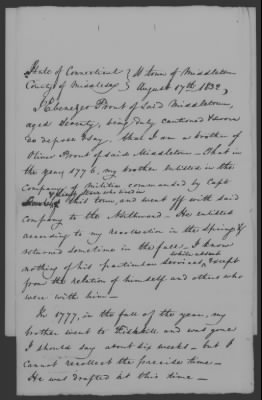 State of Connecticut } At town of Middletown
County of Middlesex } August 17th 1832,
I Ebenezer Prout of said Middletown,
aged Seventy, being duly cautioned & sworn
do depose & say. that I am a brother of
Oliver Prout of said Middletown – That in
the year 1776, my brother enlisted in the
Company of militia commanded by Capt
this town, and went off with said
company to the Northward – He enlisted
according to my recollection in the Spring &
returned sometime in the fall – I know
while absent
nothing of his particular services, except
from the relation of himself and others who
were with him –
In 1777, in the fall of the year, my
brother went to Fishkill and was gone
I should say about six weeks – but I
cannot recollect the precise time –
He was drafted at this time –